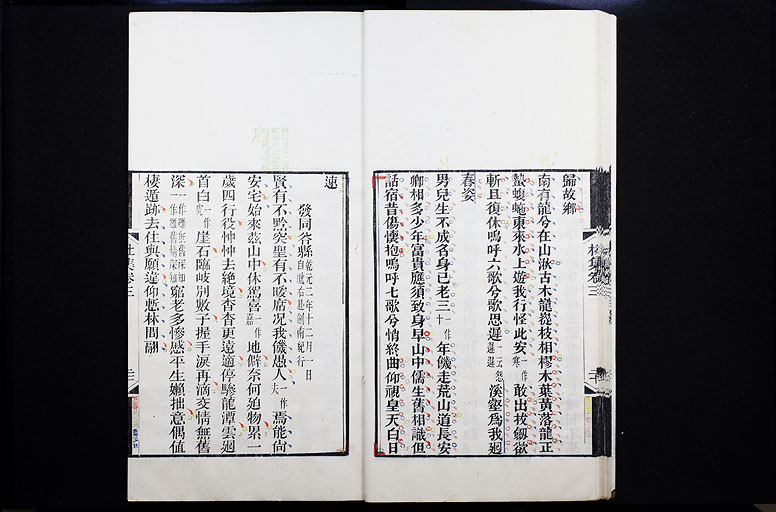 歸故鄉
南有龍兮在山湫古木巃嵸枝相樛木葉黃落龍正
蟄蝮蛇東來水上遊我行怪此安一作敢出拔劒欲
斬且復休嗚呼六歌兮歌思遲溪壑爲我迴
春姿
男兒生不成名身已老三十作年饑走荒山道長安
卿相多少年富貴應須致身早山中儒生舊相識但
話宿昔傷懷抱嗚呼七歌兮悄終曲仰視皇天白日
速
發同谷縣乾元二年十二月一日自隴右赴劍南紀行
賢有不黔突聖有不暖席況我饑愚人一作夫焉能尚
安宅始來茲山中休駕喜一作嘉地僻奈何迫物累一
歲四行役忡忡去絕境杳杳更遠適停驂龍潭雲迴
首白一作虎崖石臨岐別數子握手淚再滴交情無舊
深一作窮老多慘慼平生嬾拙意偶值
棲遁跡去住與願違仰慙林間翮
杜集卷三